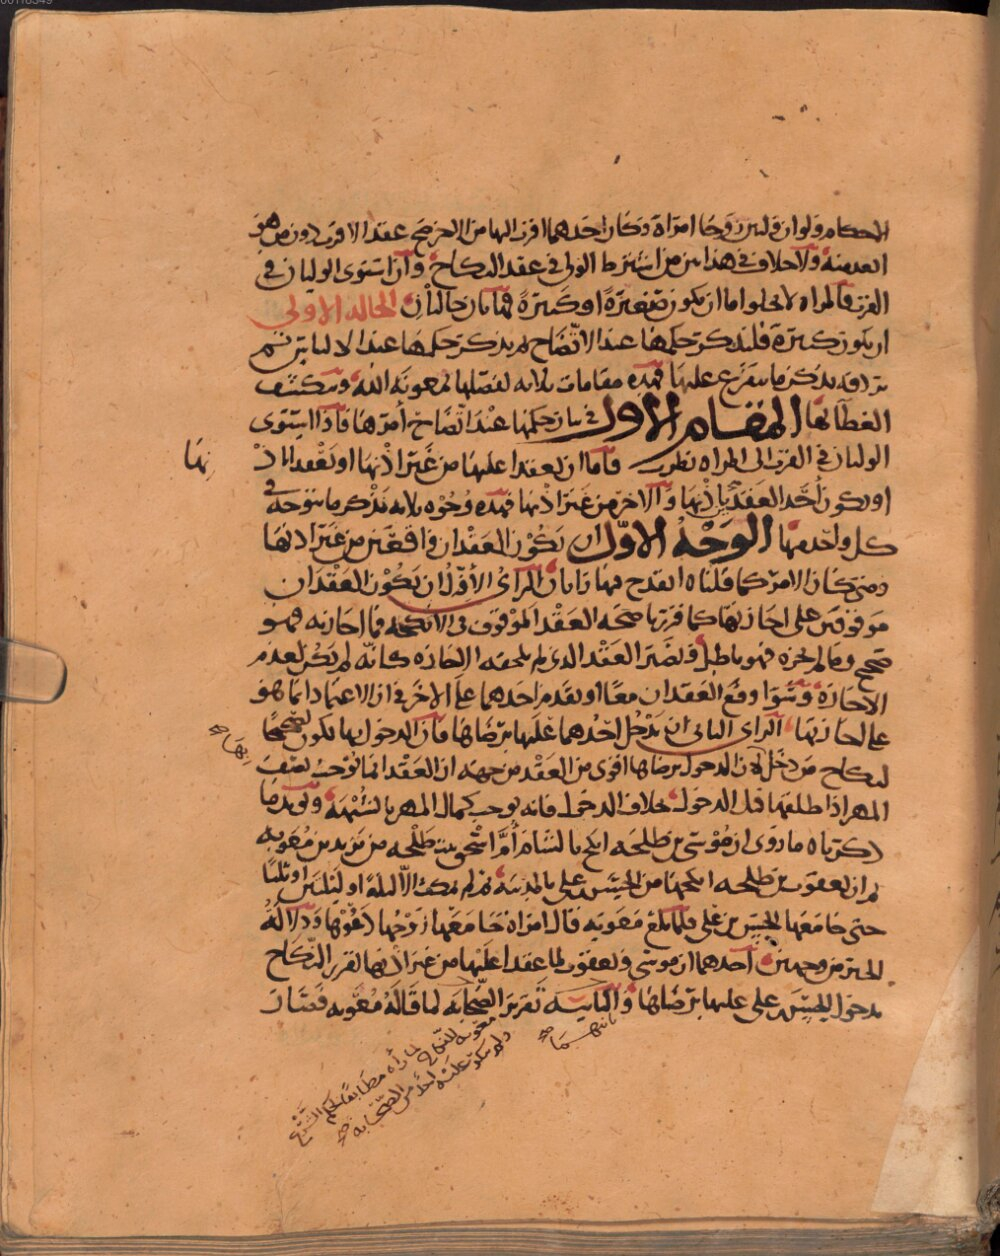 الحكام ولو ان وليين زوجا امراة وكان احدهما اقرب اليها من الاخر صح عقد الاقرب دون من هو
ابعد منه ولا خلاف في هذا بين من اشترط الولي في عقد النكاح وان استوى الوليان في
القرب فالمراه لا يخلوا اما ان يكون صغيرة او كبيرة فهاتان حالتان الحاله الاولى
ان يكون كبيرة فلنذكر حكمها عند الاتضاح ثم يذكر حكمها عند الالتباس ثم
نردفه بذكر ما يتفرع عليها فهذه مقامات ثلاثه نفصلها بمعونة الله ونكشف
الغطا عنها المقام الاول في بيان حكمها عند اتضاح أمرها فاذا استوى
الوليان في القرب الى المراه نظرت فاما ان يعقدا عليها من غير اذنها او يعقدا باذ
نها
او يكون أحد العقدين باذنها والاخر من غير اذنها فهذه وجوه ثلاثه نذكر ما يتوجه في
كل واحد منها الوجه الاول ان يكون العقدان واقعين من غير اذنها
ومتى كان الامر كما قلناه انقدح فيها رايان الراي الأول ان يكون العقدان
موقوفين على اجازتها كما قررنا صحة العقد الموقوف في الانكحه فما اجازته فهو
صحيح وما لم تجزه فهو باطل ويصير العقد الذي لم تلحقه الاجازه كانه لم يكن لعدم
الاجازة وسوا وقع العقدان معا او تقدم احدهما على الاخر في ان الاعتماد انما هو
على اجازتها الراي الثاني ان يدخل احدهما عليها برضاها فان الدخول بها يكون تصحيحا
بها صح
لنكاح من دخل لان الدخول برضاها اقوى من العقد من جهة ان العقد انما يوجب نصف
المهر اذا طلقها قبل الدخول بخلاف الدخول فانه يوجب كمال المهر بالشبهة ويؤيد ما
ذكرناه ما روى ان موسى بن طلحه انكح بالشام أم اسحق بنت طلحه من يزيد بن معويه
ثم ان يعقوب بن طلحه انكحها من الحسن بن علي بالمدينة فلم تمكث الا ليلة او ليلتين او ثلثا
حتى جامعها الحسن بن علي فلما بلغ معويه قال امراة جامعها زوجها دعوها ودلالة
الخبر من وجهين أحدهما ان موسى ويعقوب لما عقدا عليها من غير اذنها تقرر النكاح
بدخول الحسن بن علي عليها برضاها والثانيه تقرير الصحابة لما قاله معويه فصار
ما تهما صح
معويه للنكاح لما رآه مطابقا لحكم الشرع
ولم ينكر عليه احد من الصحابه صح